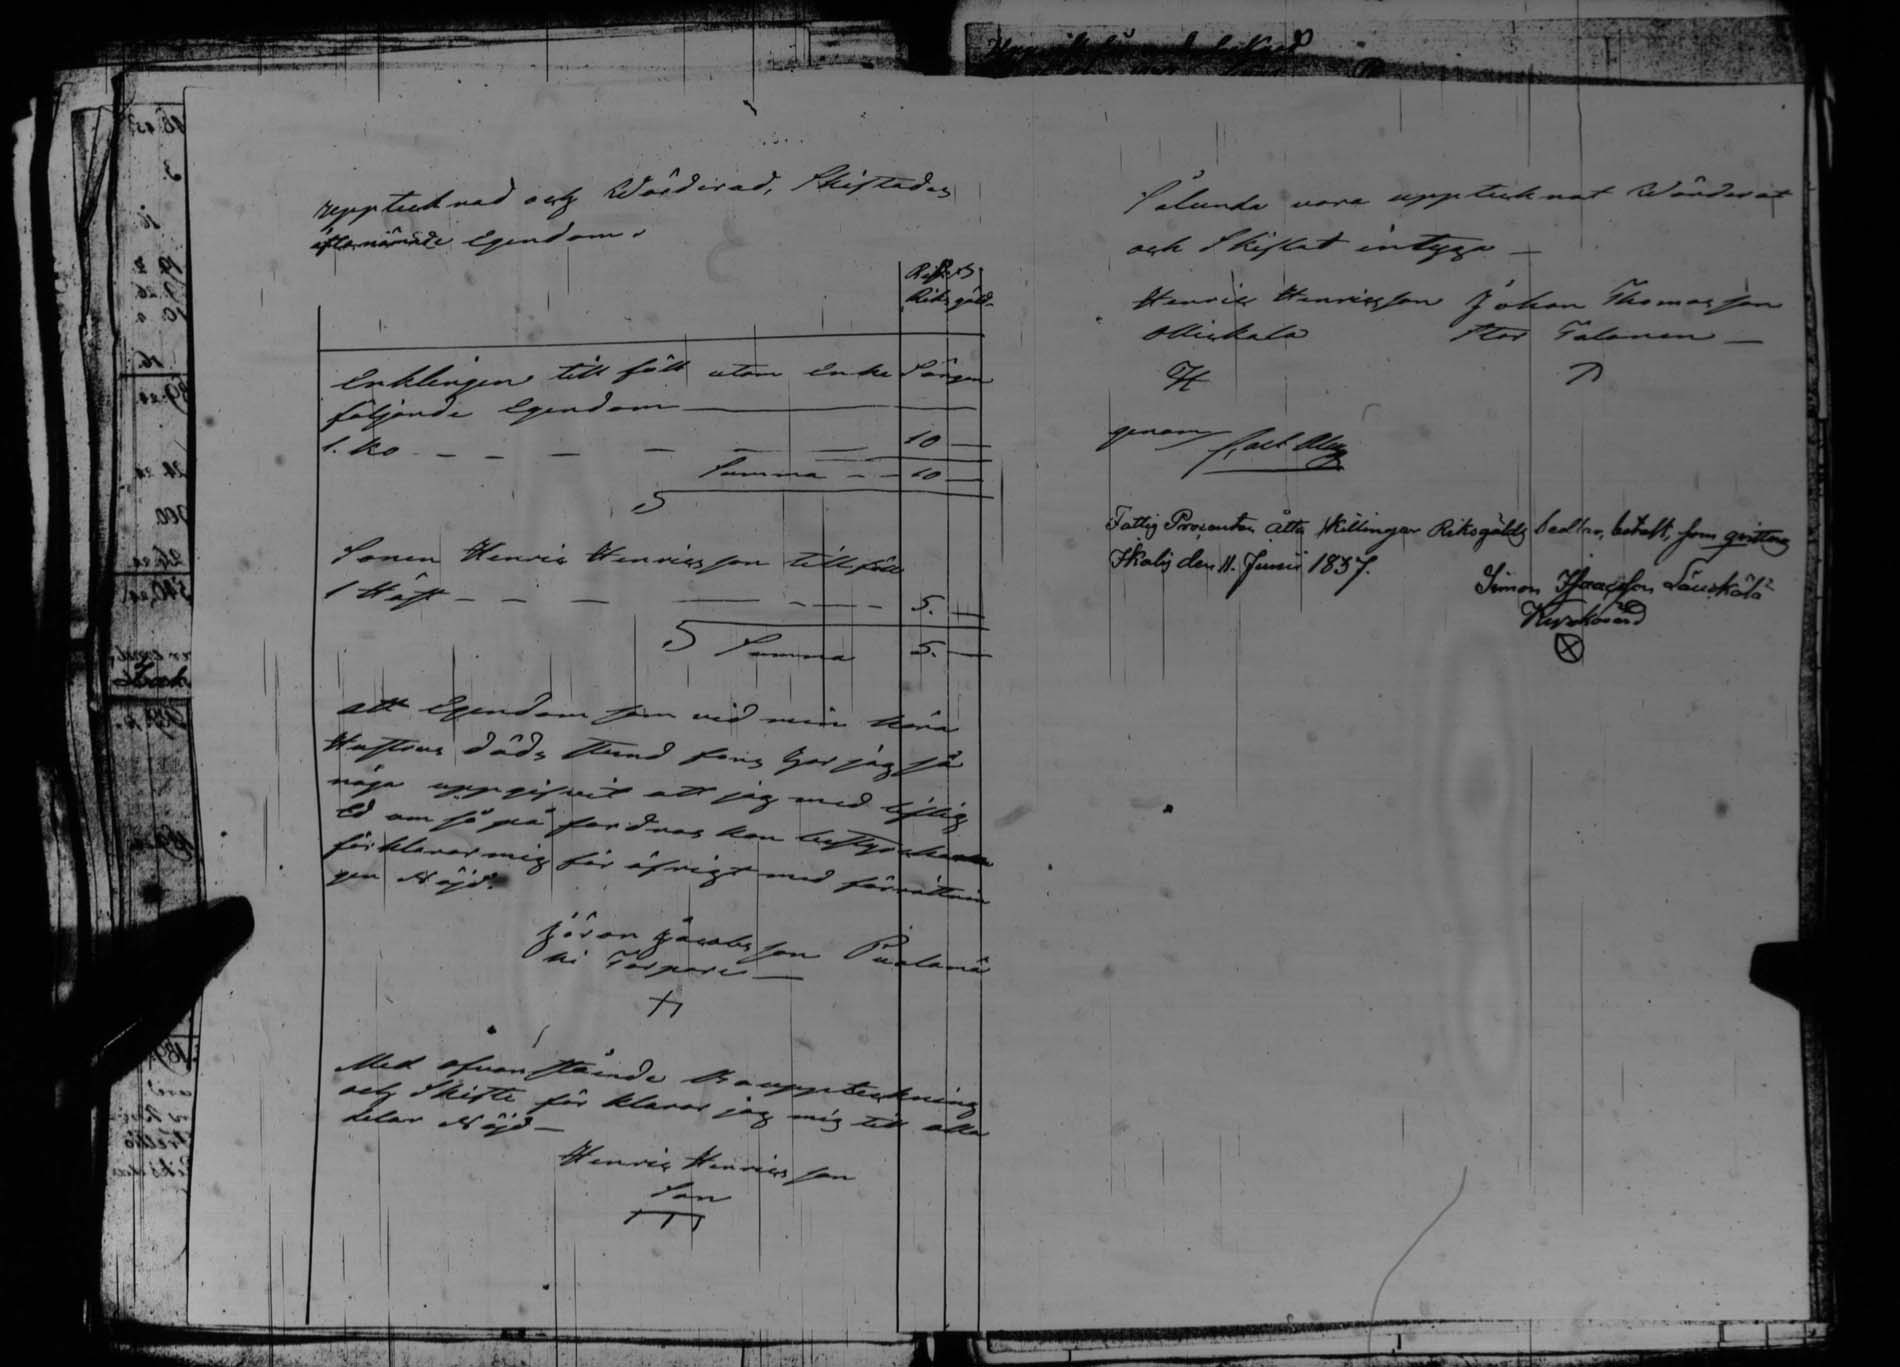 upptecknad och Wärderad, Skiftades
efternämde Egendom.
Riksgäld.
Enklingen till föll utom Enke Sängen
följande Egendom
1. Ko 10
Summa 10
Sonen Henric Henricsson tillföll
1 Häst 5.
Summa 5.
att Egendom som vid min kära
Hustrus döds stund fans har jag så
nöga uppgifvit att jag med liflig
Ed om så på fordras kan
förklarar mig för öfrigt med förrättnin
gen Nöjd.
Jöran Jacobsson
Med ofvanstående Bouppteckning
och Skifte för klarar jag mig till alla
delar Nöjd
Henric Henricsson
Son
Sålunda vara upptecknat Wärderat
och Skiftat intyga
Henric Henricsson Johan Thomasson
Ollickala Stor Talonen
H
genom
Fattig Procenten åtta skillingar Riksgälds Sedlar, betalt, som qvitteras
den 11. Junii 1837.
Simon Isaacsson
Kyrkovärd